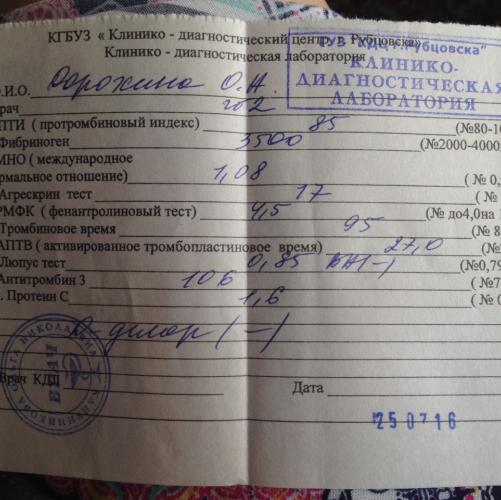 КГБУЗ « Клинико - диагностический центр г. Рубцовска»
Клинико - диагностическая лаборатория
ГУЗ "КДЦ г.Рубцовска"
КЛИНИКО-
ДИАГНОСТИЧЕСКАЯ
ЛАБОРАТОРИЯ
.И.О. Дорохина О. А.
рач гб2
ПТИ ( протромбиновый индекс) 85 (№80-10
Фибриноген 3500 (№2000-4000
МНО ( международное
рмальное отношение) 1,08 ( № 0,
Агрескрин тест 17 ( №
РМФК ( фенантролиновый тест) 4,5 ( № до4,0на
Тромбиновое время 95 ( № 8
АПТВ ( активированное тромбопластиновое время) 27,0 (№
Люпус тест 0,85 ВА(-) (№0,79
Антитромбин 3 106 ( №7
. Протеин С 1,6 ( № 0
Д-димер (-)
ОЛЬГА НИКОЛАЕВНА
ВРАЧ
Врач КДЛ
Дата
250716